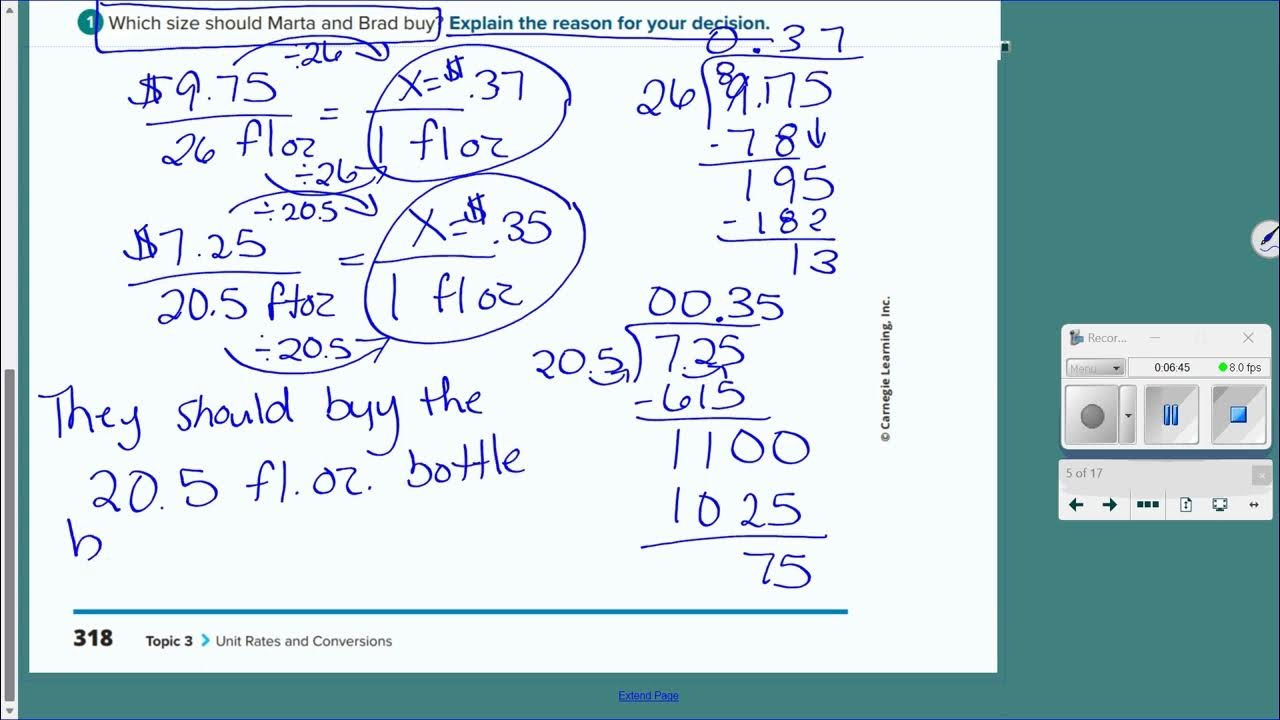 1 Which size should Marta and Brad buy? Explain the reason for your decision.
÷26
$9.75 / 26 fl oz = x=$.37 / 1 fl oz
÷26
÷20.5
$7.25 / 20.5 fl oz = x=$.35 / 1 fl oz
÷20.5
They should buy the
20.5 fl.oz. bottle
b
0.37
26 9.75
8 1
-78
195
-182
13
00.35
20.5 7.25
-615
1100
1025
75
© Carnegie Learning, Inc.
318 Topic 3 > Unit Rates and Conversions
Extend Page
Recor...
Menu
0:06:45
8.0 fps
5 of 17